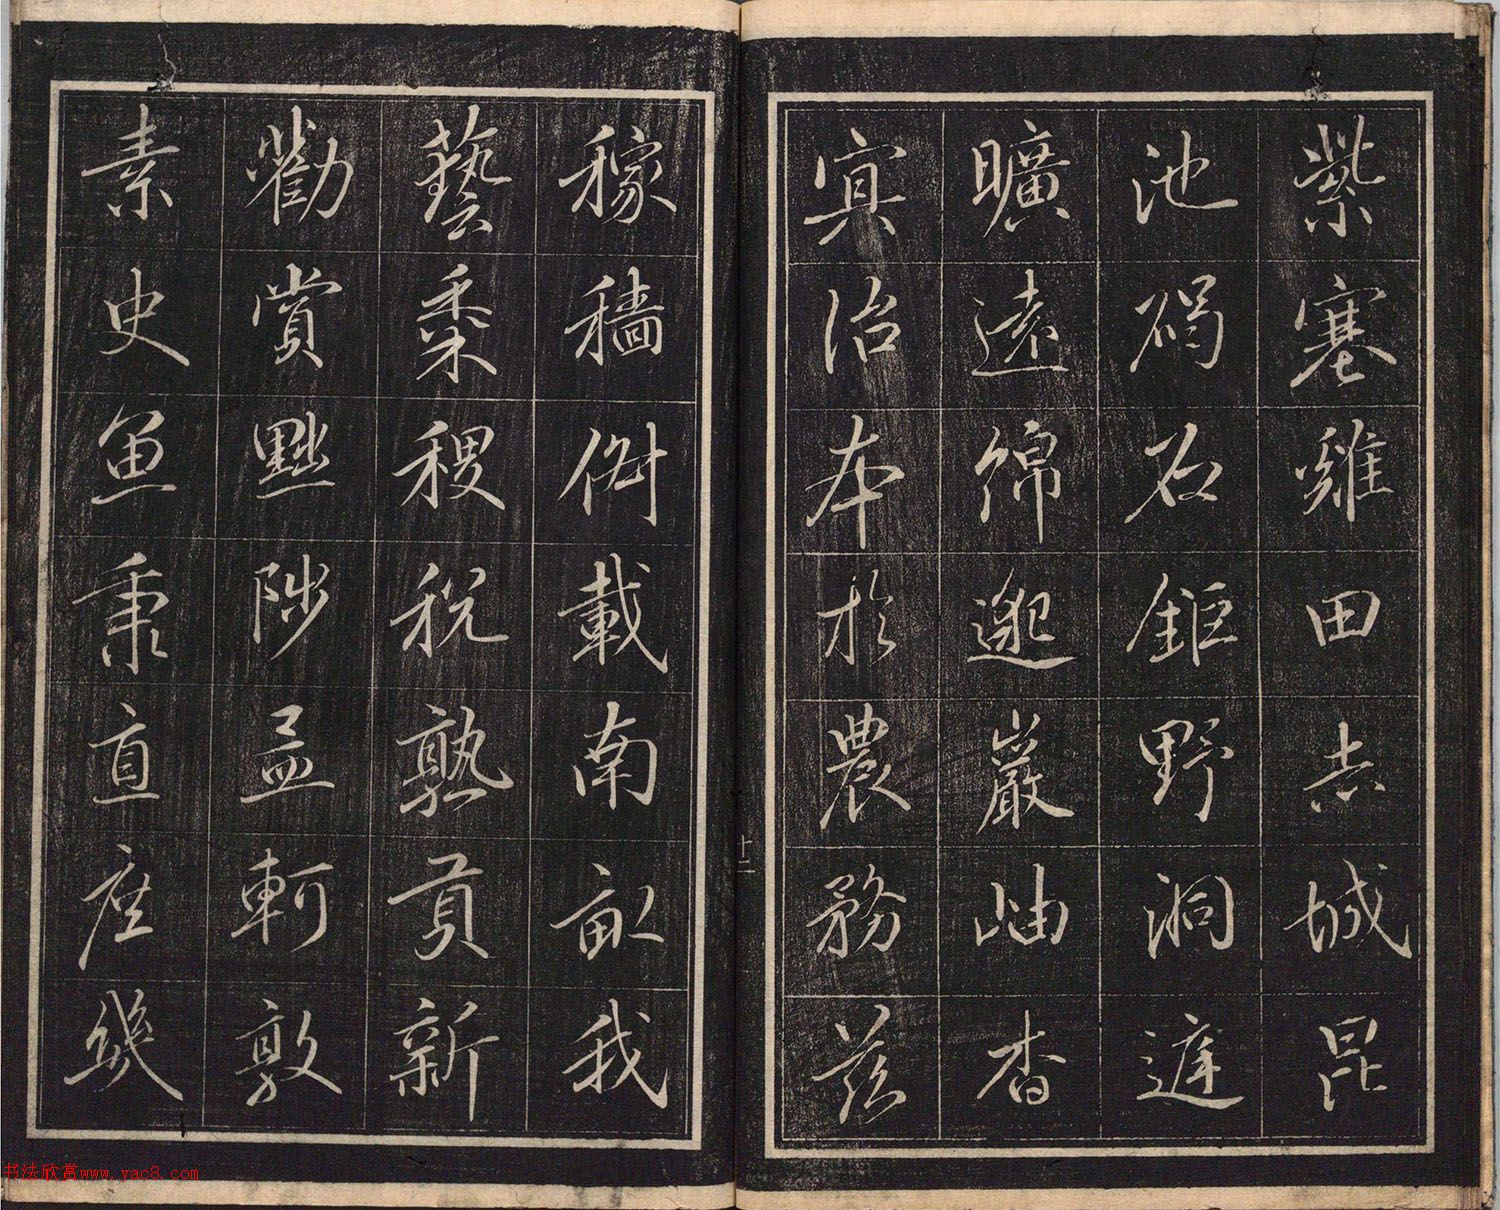 紫塞雞田赤城昆
池碣石鉅野洞遲
曠遠綿邈巖岫杳
冥治本於農務茲
稼穡俶載南畝我
藝黍稷稅熟貢新
勸賞黜陟孟軻敦
素史魚秉直庶幾
書法欣赏www.yac8.com